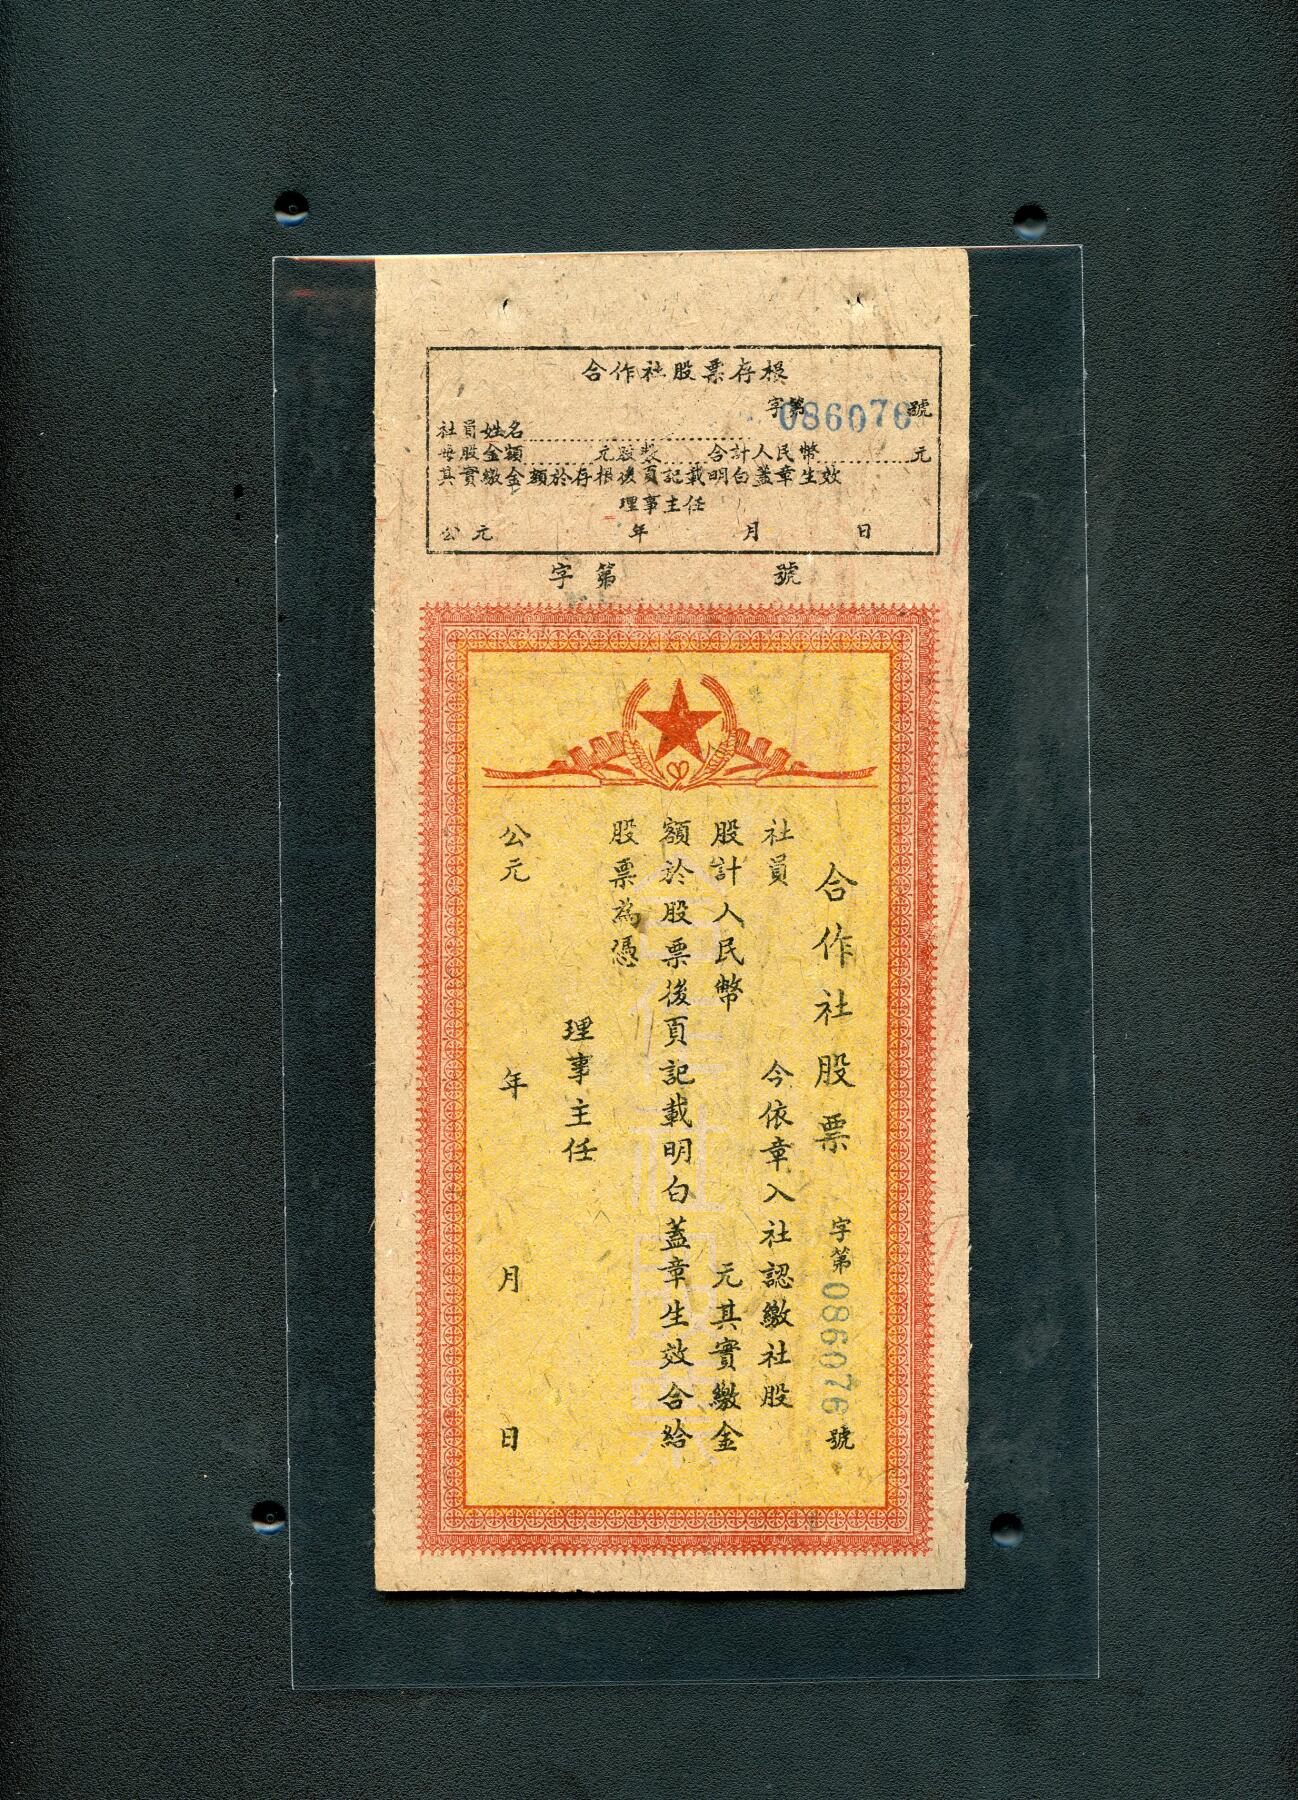 合作社股票存根
字第086076號
社員姓名
每股金額 元股数 合計人民幣 元
其實繳金額於存根後頁記載明白蓋章生效
理事主任
公元 年 月 日
字第 號
合作社股票 字第086076號
社員 今依章入社認繳社股
股計人民幣 元其實繳金
額於股票後頁記載明白蓋章生效合給
股票為憑
理事主任
公元 年 月 日
合作社股票